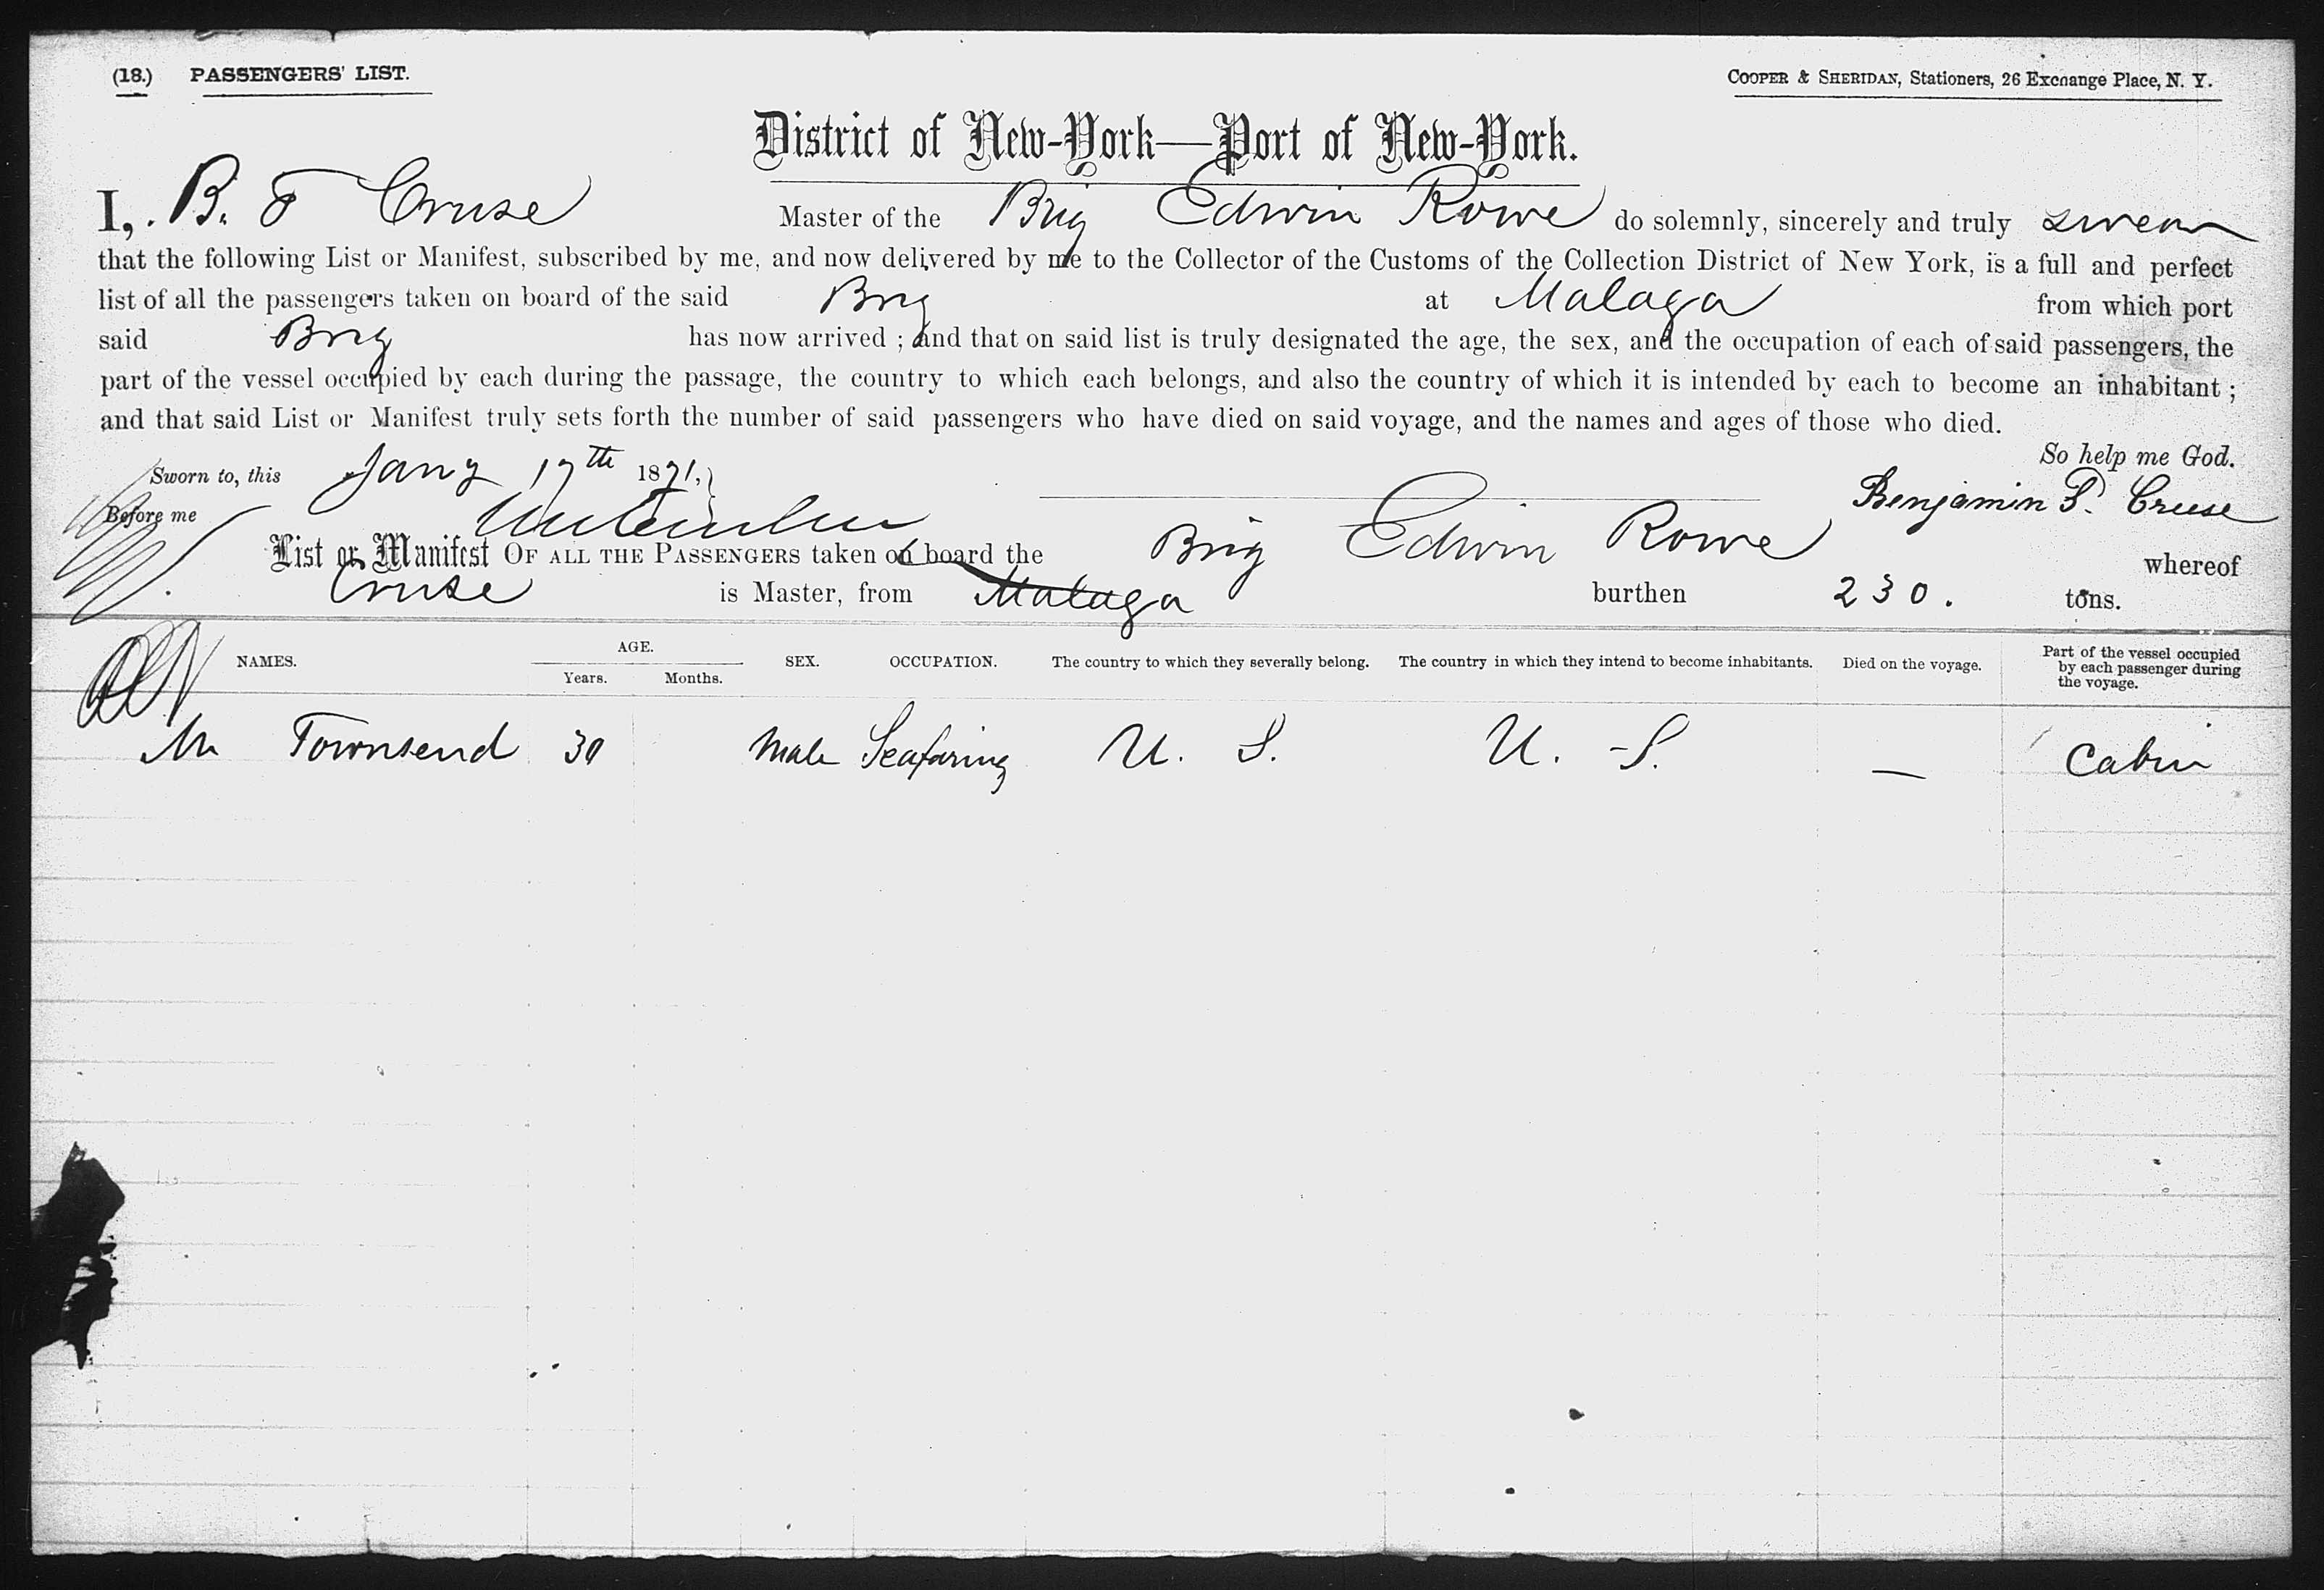 (18.) PASSENGERS' LIST.
COOPER & SHERIDAN, Stationers, 26 Exchange Place, N. Y.
District of New-York—Port of New-York.
I, B. F Cruse Master of the Brig Edwin Rowe do solemnly, sincerely and truly swear
that the following List or Manifest, subscribed by me, and now delivered by me to the Collector of the Customs of the Collection District of New York, is a full and perfect
list of all the passengers taken on board of the said Brig at Malaga from which port
said Brig has now arrived ; and that on said list is truly designated the age, the sex, and the occupation of each of said passengers, the
part of the vessel occupied by each during the passage, the country to which each belongs, and also the country of which it is intended by each to become an inhabitant ;
and that said List or Manifest truly sets forth the number of said passengers who have died on said voyage, and the names and ages of those who died.
So help me God.
Sworn to, this Jany 17th 1871,
Benjamin F. Cruse
Before me
List or Manifest OF ALL THE PASSENGERS taken on board the Brig Edwin Rowe whereof
Cruse is Master, from Malaga burthen 230. tons.
NAMES. AGE. Years. Months. SEX. OCCUPATION. The country to which they severally belong. The country in which they intend to become inhabitants. Died on the voyage. Part of the vessel occupied by each passenger during the voyage.
Mr Townsend 30 Male Seafaring U. S. U. S. — Cabin